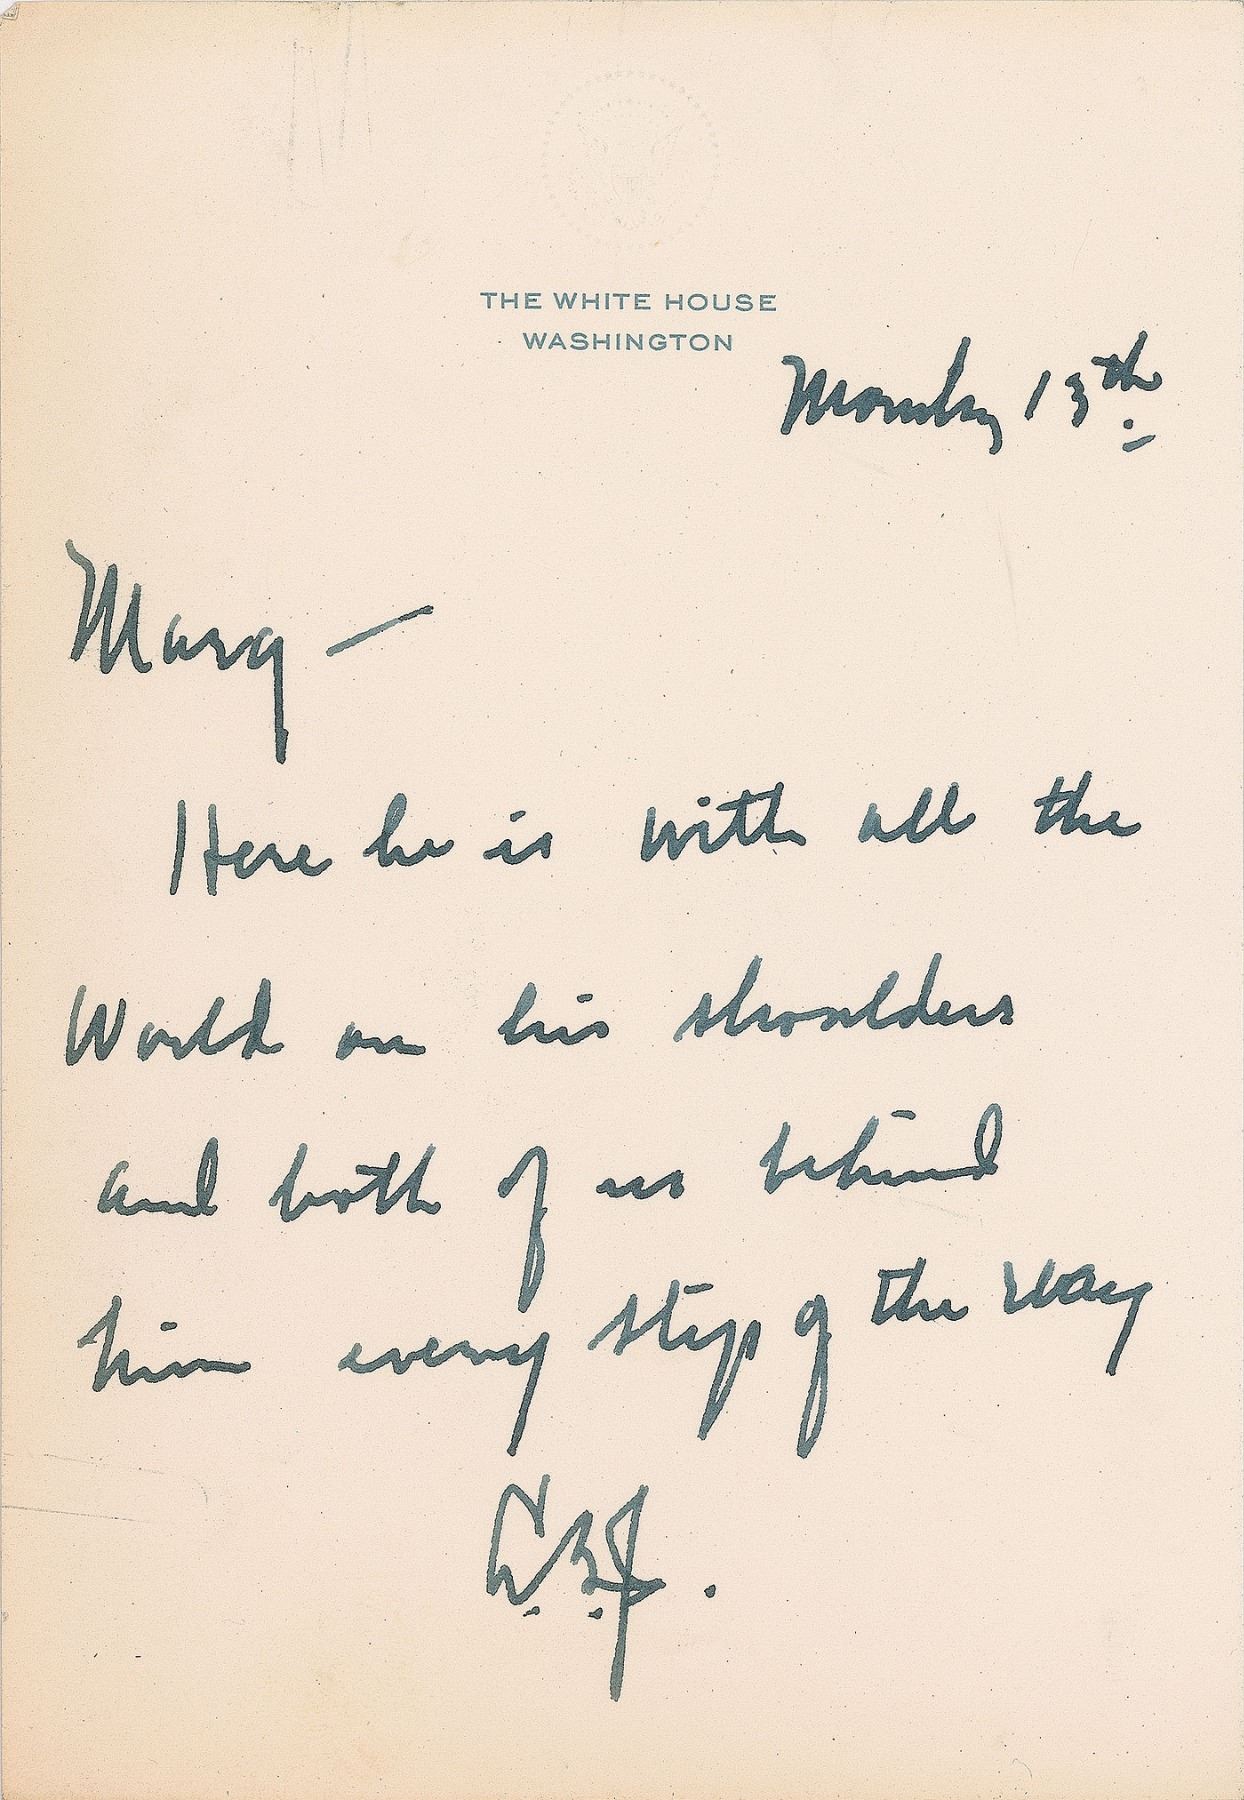 THE WHITE HOUSE
WASHINGTON
Monday 13th.
Marg —
Here he is with all the
World on his shoulders
and both of us behind
him every step of the way
L.B.J.